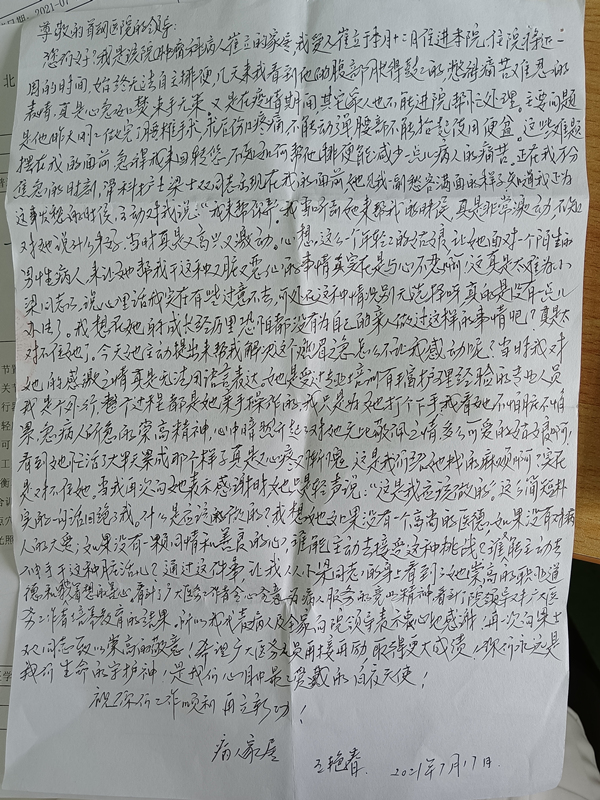 尊敬的首钢医院的领导:
您们好!我是该院肿瘤科病人崔立的家属 我爱人崔立于本月十二日住进本院,住院将近一
周的时间,始终无法自主排便 几天来我看到他的腹部 胀得鼓鼓的,愁得痛苦难忍的
表情,真是心急如焚束手无策 又是在疫情期间 其它家人也不能进院帮忙处理。主要问题
是他昨天刚刚做完了腰椎手术,术后伤口疼痛不能动弹腰部不能抬起使用便盆。这些难题
摆在我的面前 急得我来回转悠 不知如何帮他排便能减少一点儿病人的痛苦。正在我万分
焦急的时刻,骨科护士梁士双同志出现在我的面前 她见我一副愁容满面的样子知道我正为
这事发愁的时候,主动对我说:“我来帮你弄”我当听到她来帮我的时候,真是非常激动 不知
对她说什么来了,当时真是又高兴又激动。心想,这么一个年轻的姑娘 让她面对一个陌生的
男性病人,来让她帮我干这种又脏又恶心的事情真实在是与心不忍啊!这真是太难为小
梁同志了,说心里话我实在有些过意不去。可处在这种情况别无选择呀 真的是没有一点儿
办法了。我想在她的成长经历里恐怕都没有为自己的亲人做过这样的事情吧?真是太
对不住她了。今天她主动提出来帮我解决这个燃眉之急 怎么不让我感动呢?当时我对
她的感激之情真是无法用语言表达。她是受过专业培训有丰富护理经验的专业人员
我是个外行 整个过程都是她亲手操作的,我只是为她打个下手,我看她不怕脏不怕
累,急病人所急的崇高精神,心中暗然升起了对她无比敬佩之情 多么可爱的姑娘啊,
看到她忙活了大半天累成那个样子真是又心疼又惭愧 这是我们给她找的麻烦啊!实在
是对不住她。当我再次向她表示感谢时她只是轻声说:“这是我应该做的”这么简短朴
实的一句话回绝了我。什么是应该的做的?我想她如果没有一个高尚的医德,如果没有对病
人的大爱;如果没有一颗同情和善良的心,谁能主动去接受这种挑战?谁能主动去
伸手干这种脏活儿?通过这件事 让我从小梁同志的身上看到了她崇高的职业道
德和善良的爱心。看到了广大医务工作者全心全意为病人服务的高尚精神 看到了院领导对广大医
务工作者培养教育的结果。所以我代表病人及全家向院领导表示衷心地感谢,再次向梁士
双同志致以崇高的敬意!希望广大医务人员再接再励 取得更大成绩!你们永远是
我们生命的守护神,是我们心目中最可爱戴的白衣天使!
祝你们工作顺利 再立新功!
病人家属
王艳春 2021年7月17日